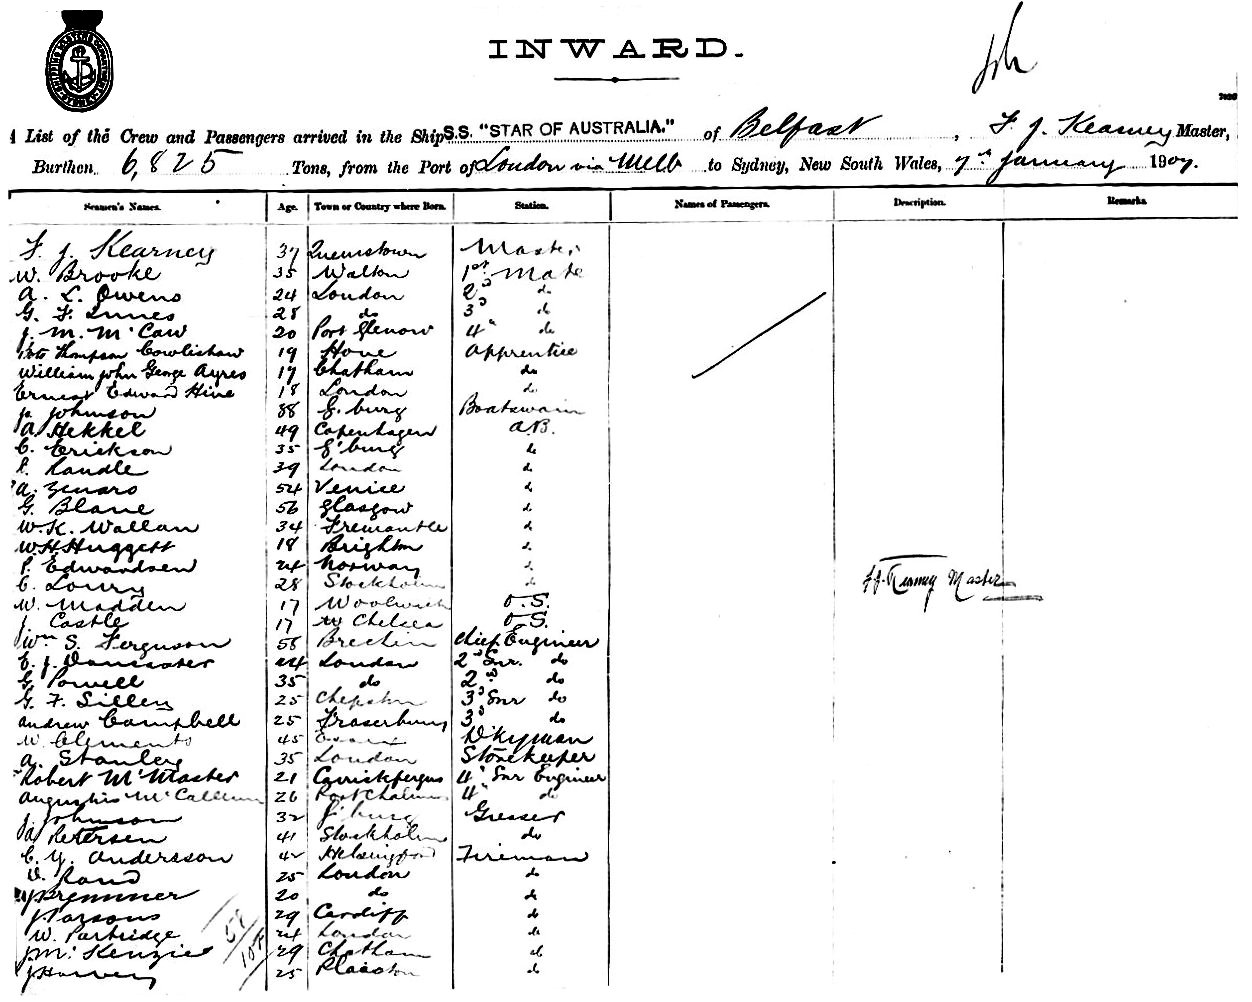 INWARD.
List of the Crew and Passengers arrived in the Ship S.S. "STAR OF AUSTRALIA." of Belfast, F. J. Kearney Master,
Burthen 6,825 Tons, from the Port of London via Melb to Sydney, New South Wales, 7th January 1907.
Seamen's Names. Age. Town or Country where Born. Station. Names of Passengers. Description. Remarks.
F. J. Kearney 37 Queenstown Master
W. Brooke 35 Walton 1st Mate
A. L. Owens 24 London 2d do
G. F. Innes 28 do 3d do
J. M. McCaw 20 Port Glenow 4" do
Thompson Cowlishaw 19 Hove Apprentice
William John George Ayres 17 Chatham do
Ernest Edward Hine 18 London do
J. Johnson 88 G. burg Boatswain
A. Hekkel 49 Copenhagen A.B.
C. Erickson 35 G'burg do
Randle 39 London do
A. Zenaro 54 Venice do
G. Blane 56 Glasgow do
W. K. Wallan 34 Fremantle do
W. H. Huggett 18 Brighton do
P. Edwardsen 24 Norway do
C. Loury 28 Stockholm do
W. Madden 17 Woolwich O.S.
J. Castle 17 W Chelsea O.S.
Wm S. Ferguson 56 Brechin Chief Engineer
E. J. Doncaster 44 London 2d Snr. do
G. Powell 35 do 2d do
G. F. Sillery 25 Chepstow 3d Snr do
Andrew Campbell 25 Fraserburg 3d do
W. Clements 45 Essex Dkyman
A. Stanley 35 London Storekeeper
Robert McMaster 21 Carrickfergus 4" Snr Engineer
Augustus McCallum 26 Port Chalmers 4" do
J. Johnson 32 G'burg Greaser
A. Petersen 41 Stockholm do
C. Y. Andersson 42 Helsingfors Fireman
D. Rand 25 London do
Bremner 20 do do
J. Parsons 29 Cardiff do
W. Partridge 24 London do
J. McKenzie 29 Chatham do
J. Harvey 25 Plaistow do
F. J. Kearney Master